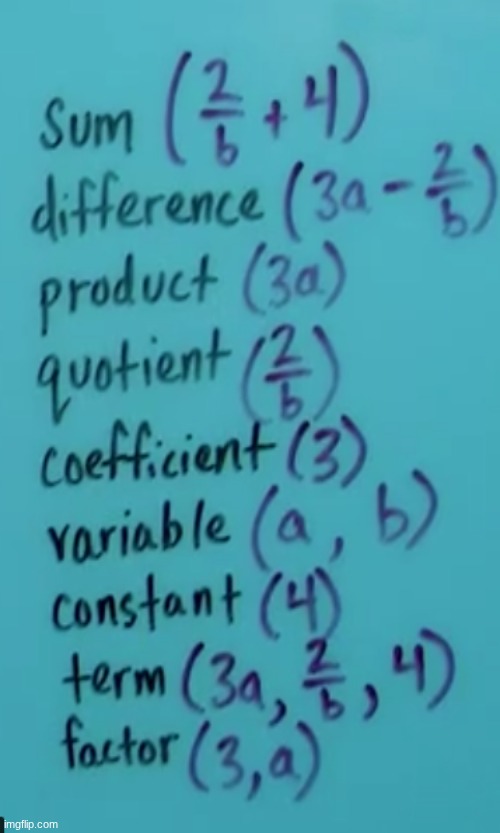 Sum (2/b + 4)
difference (3a - 2/b)
product (3a)
quotient (2/b)
coefficient (3)
variable (a, b)
constant (4)
term (3a, 2/b, 4)
factor (3,a)
imgflip.com